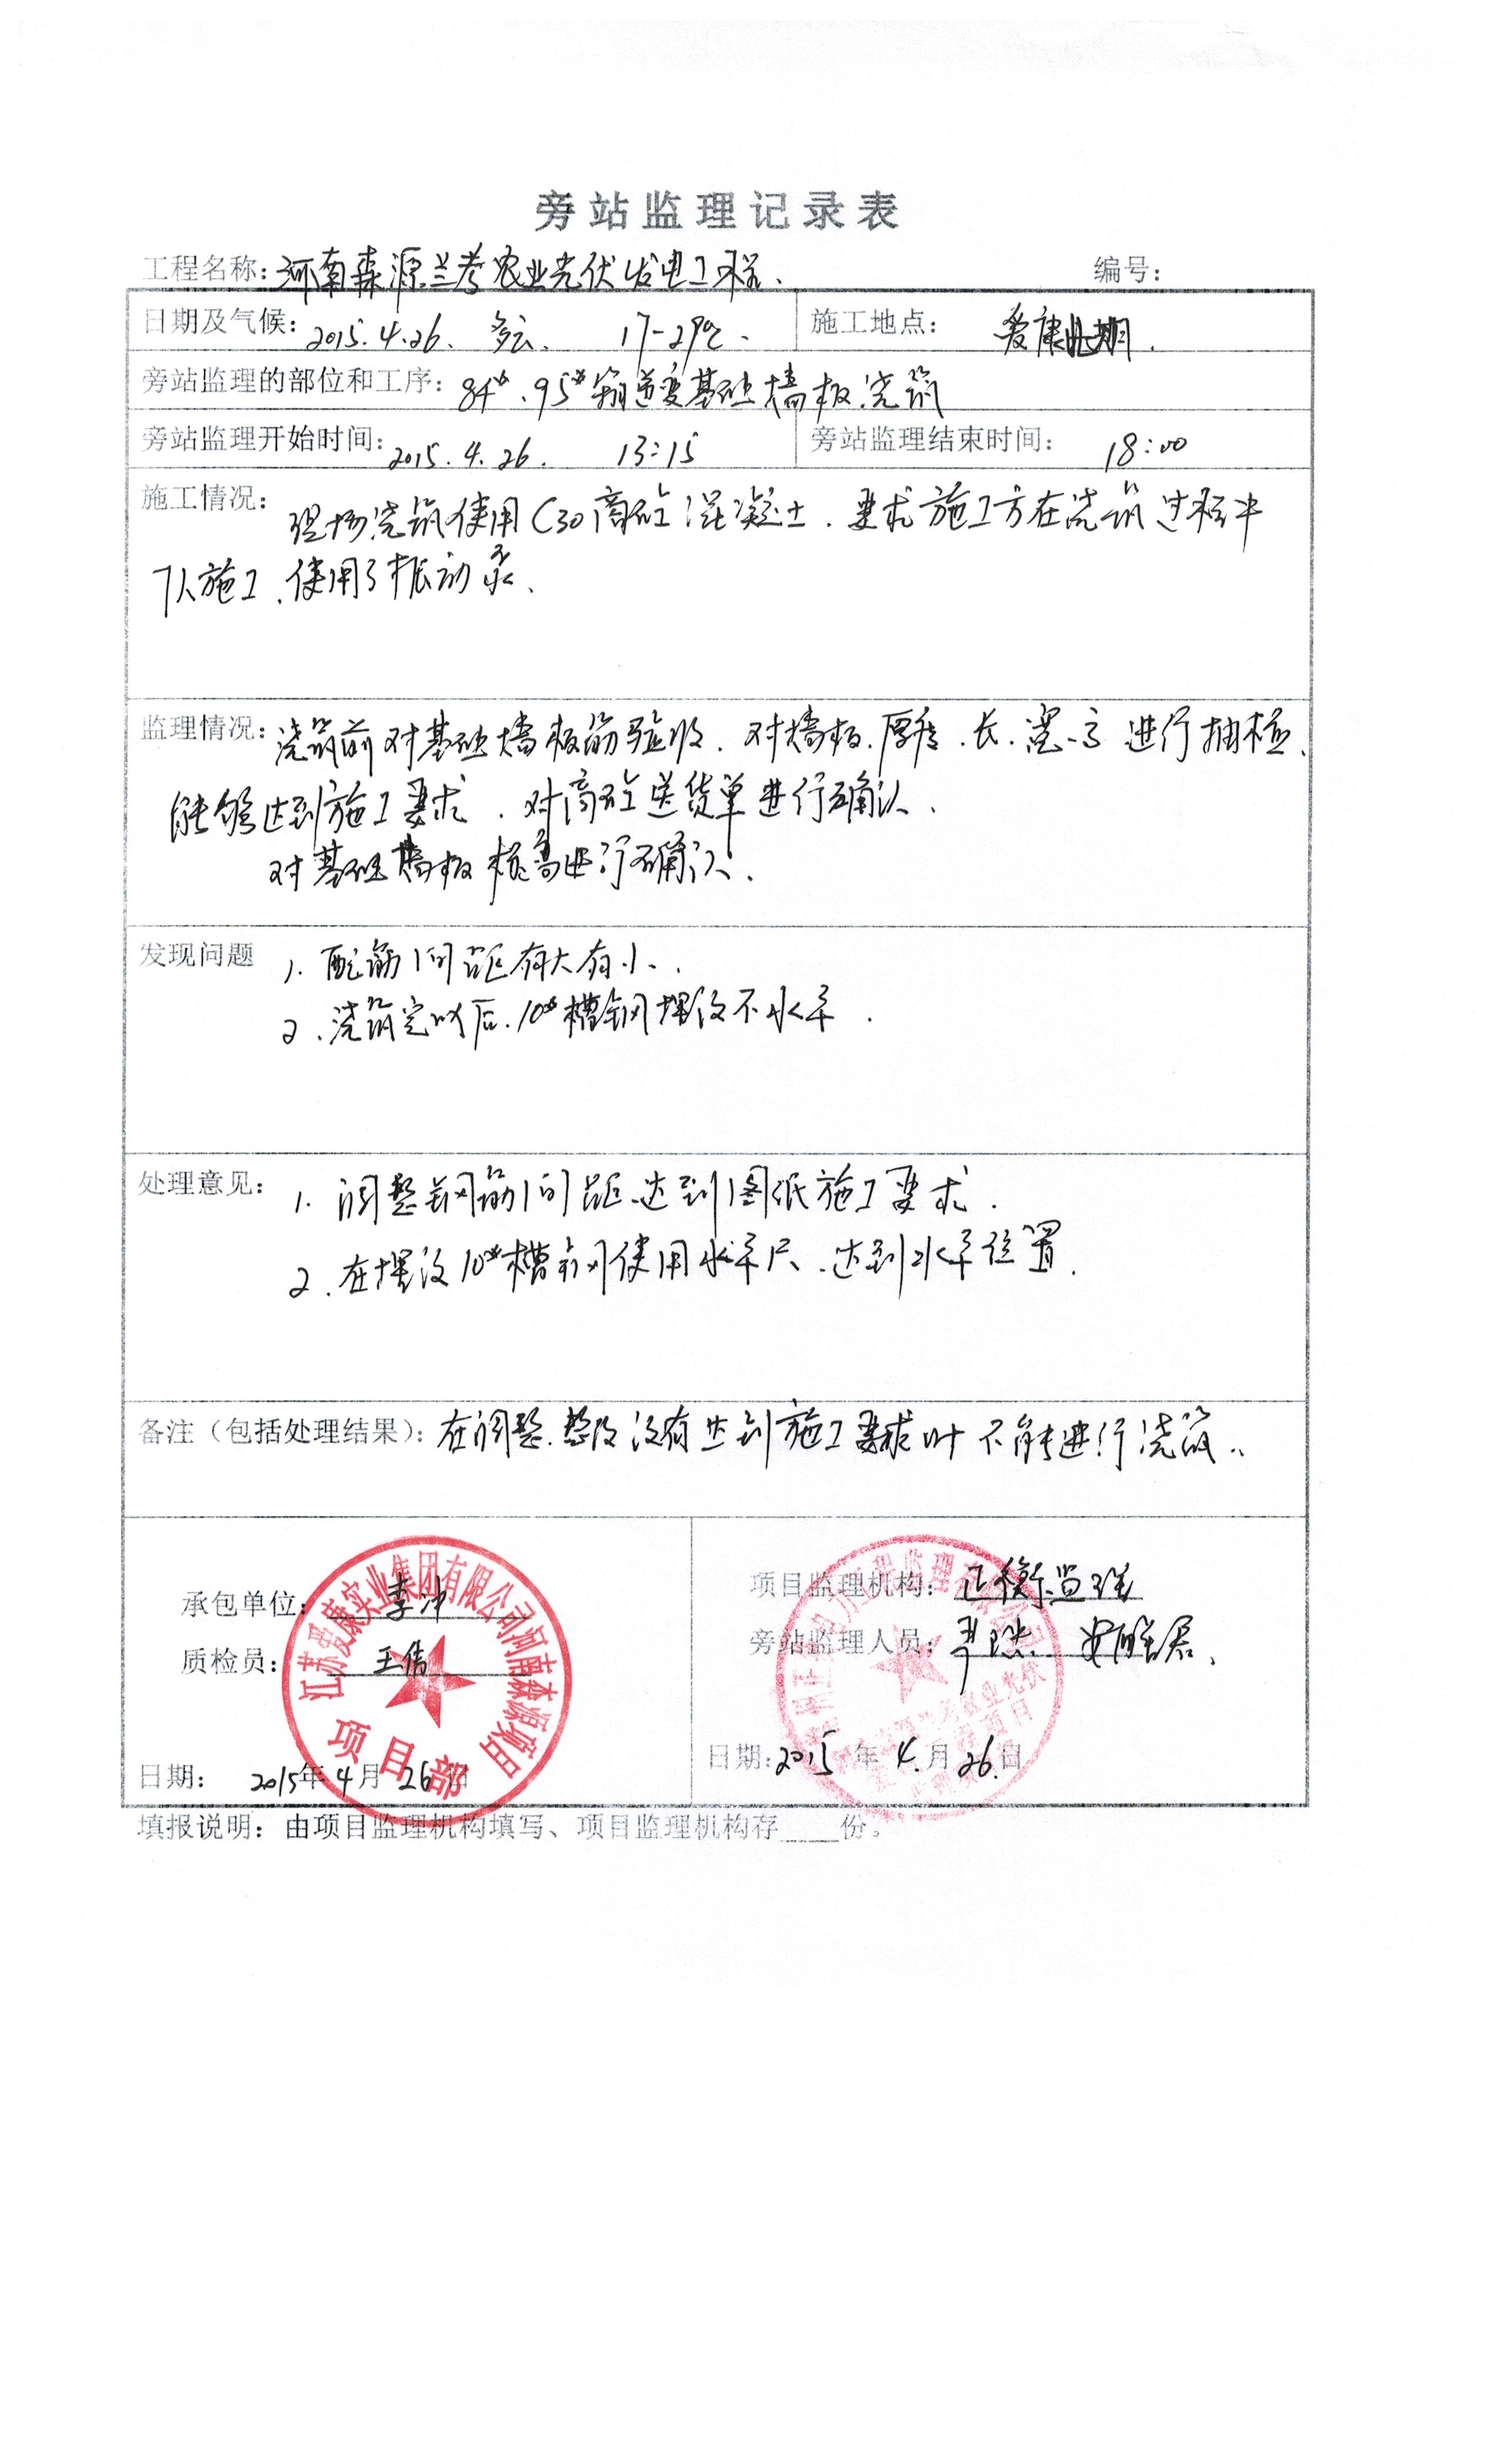 旁站监理记录表
工程名称:河南森源兰考农业光伏发电工程. 编号:
日期及气候:2015.4.26. 多云. 17-29℃. 施工地点: 爱康北期.
旁站监理的部位和工序:84#.95#箱逆变基础墙板浇筑
旁站监理开始时间:2015.4.26. 13:15 旁站监理结束时间: 18:00
施工情况: 现场浇筑使用C30商砼混凝土.要求施工方在浇筑过程中
7人施工.使用了振动泵.
监理情况:浇筑前对基础墙板筋验收.对墙板.厚度.长.宽.高进行抽检.
能够达到施工要求.对商砼送货单进行确认.
对基础墙板标高进行确认.
发现问题 1.配筋间距有大有小.
2.浇筑完以后.10#槽钢埋设不水平.
处理意见: 1.调整钢筋间距.达到图纸施工要求.
2.在埋设10#槽钢使用水平尺.达到水平位置.
备注(包括处理结果):在调整.整改没有达到施工要求时不能进行浇筑..
承包单位:李冲 项目监理机构:正衡监理
质检员:王倩 旁站监理人员:尹
日期: 2015年4月26日 日期:2015年4.月26.日
江苏爱康实业集团有限公司河南森源项目
项目部
填报说明:由项目监理机构填写、项目监理机构存____份。